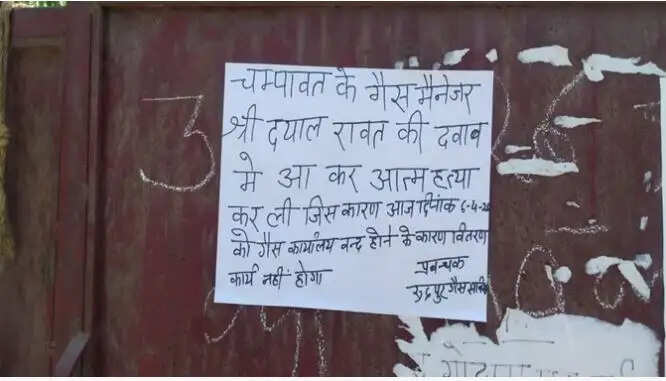 चम्पावत के गैस मैनेजर
श्री दयाल रावत की दवाब
मे आ कर आत्म हत्या
कर ली जिस कारण आज दिनांक 6-4-20
को गैस कार्यालय बन्द होने के कारण वितरण
कार्य नहीं होगा
प्रबन्धक
रूद्रपुर गैस
3
गोदाम